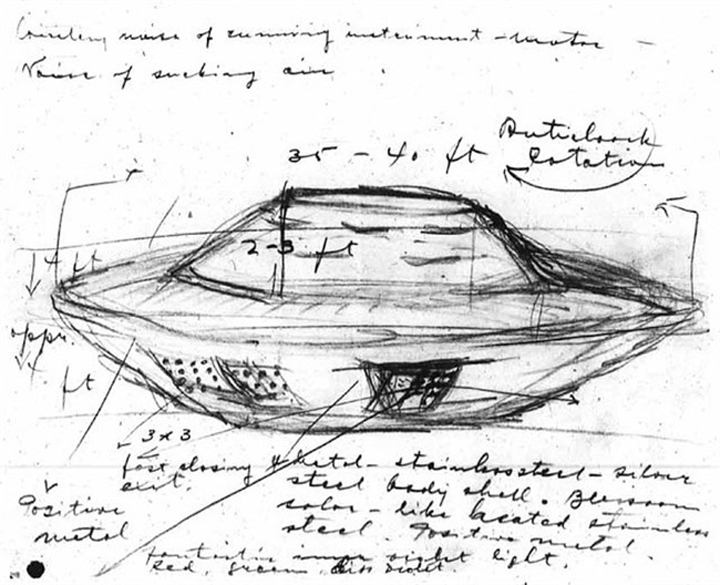 noise of running instrument - motor -
Noise of sucking air
Anticlock
rotation
35 - 40 ft
2-3 ft
4 ft
appr.
4 ft
3 x 3
fast closing
exit.
Positive
metal
Metal - stainless steel - silver
steel body shell.
color - like heated stainless
steel. Positive metal.
Fantastic inner violet light.
Red, green, violet.